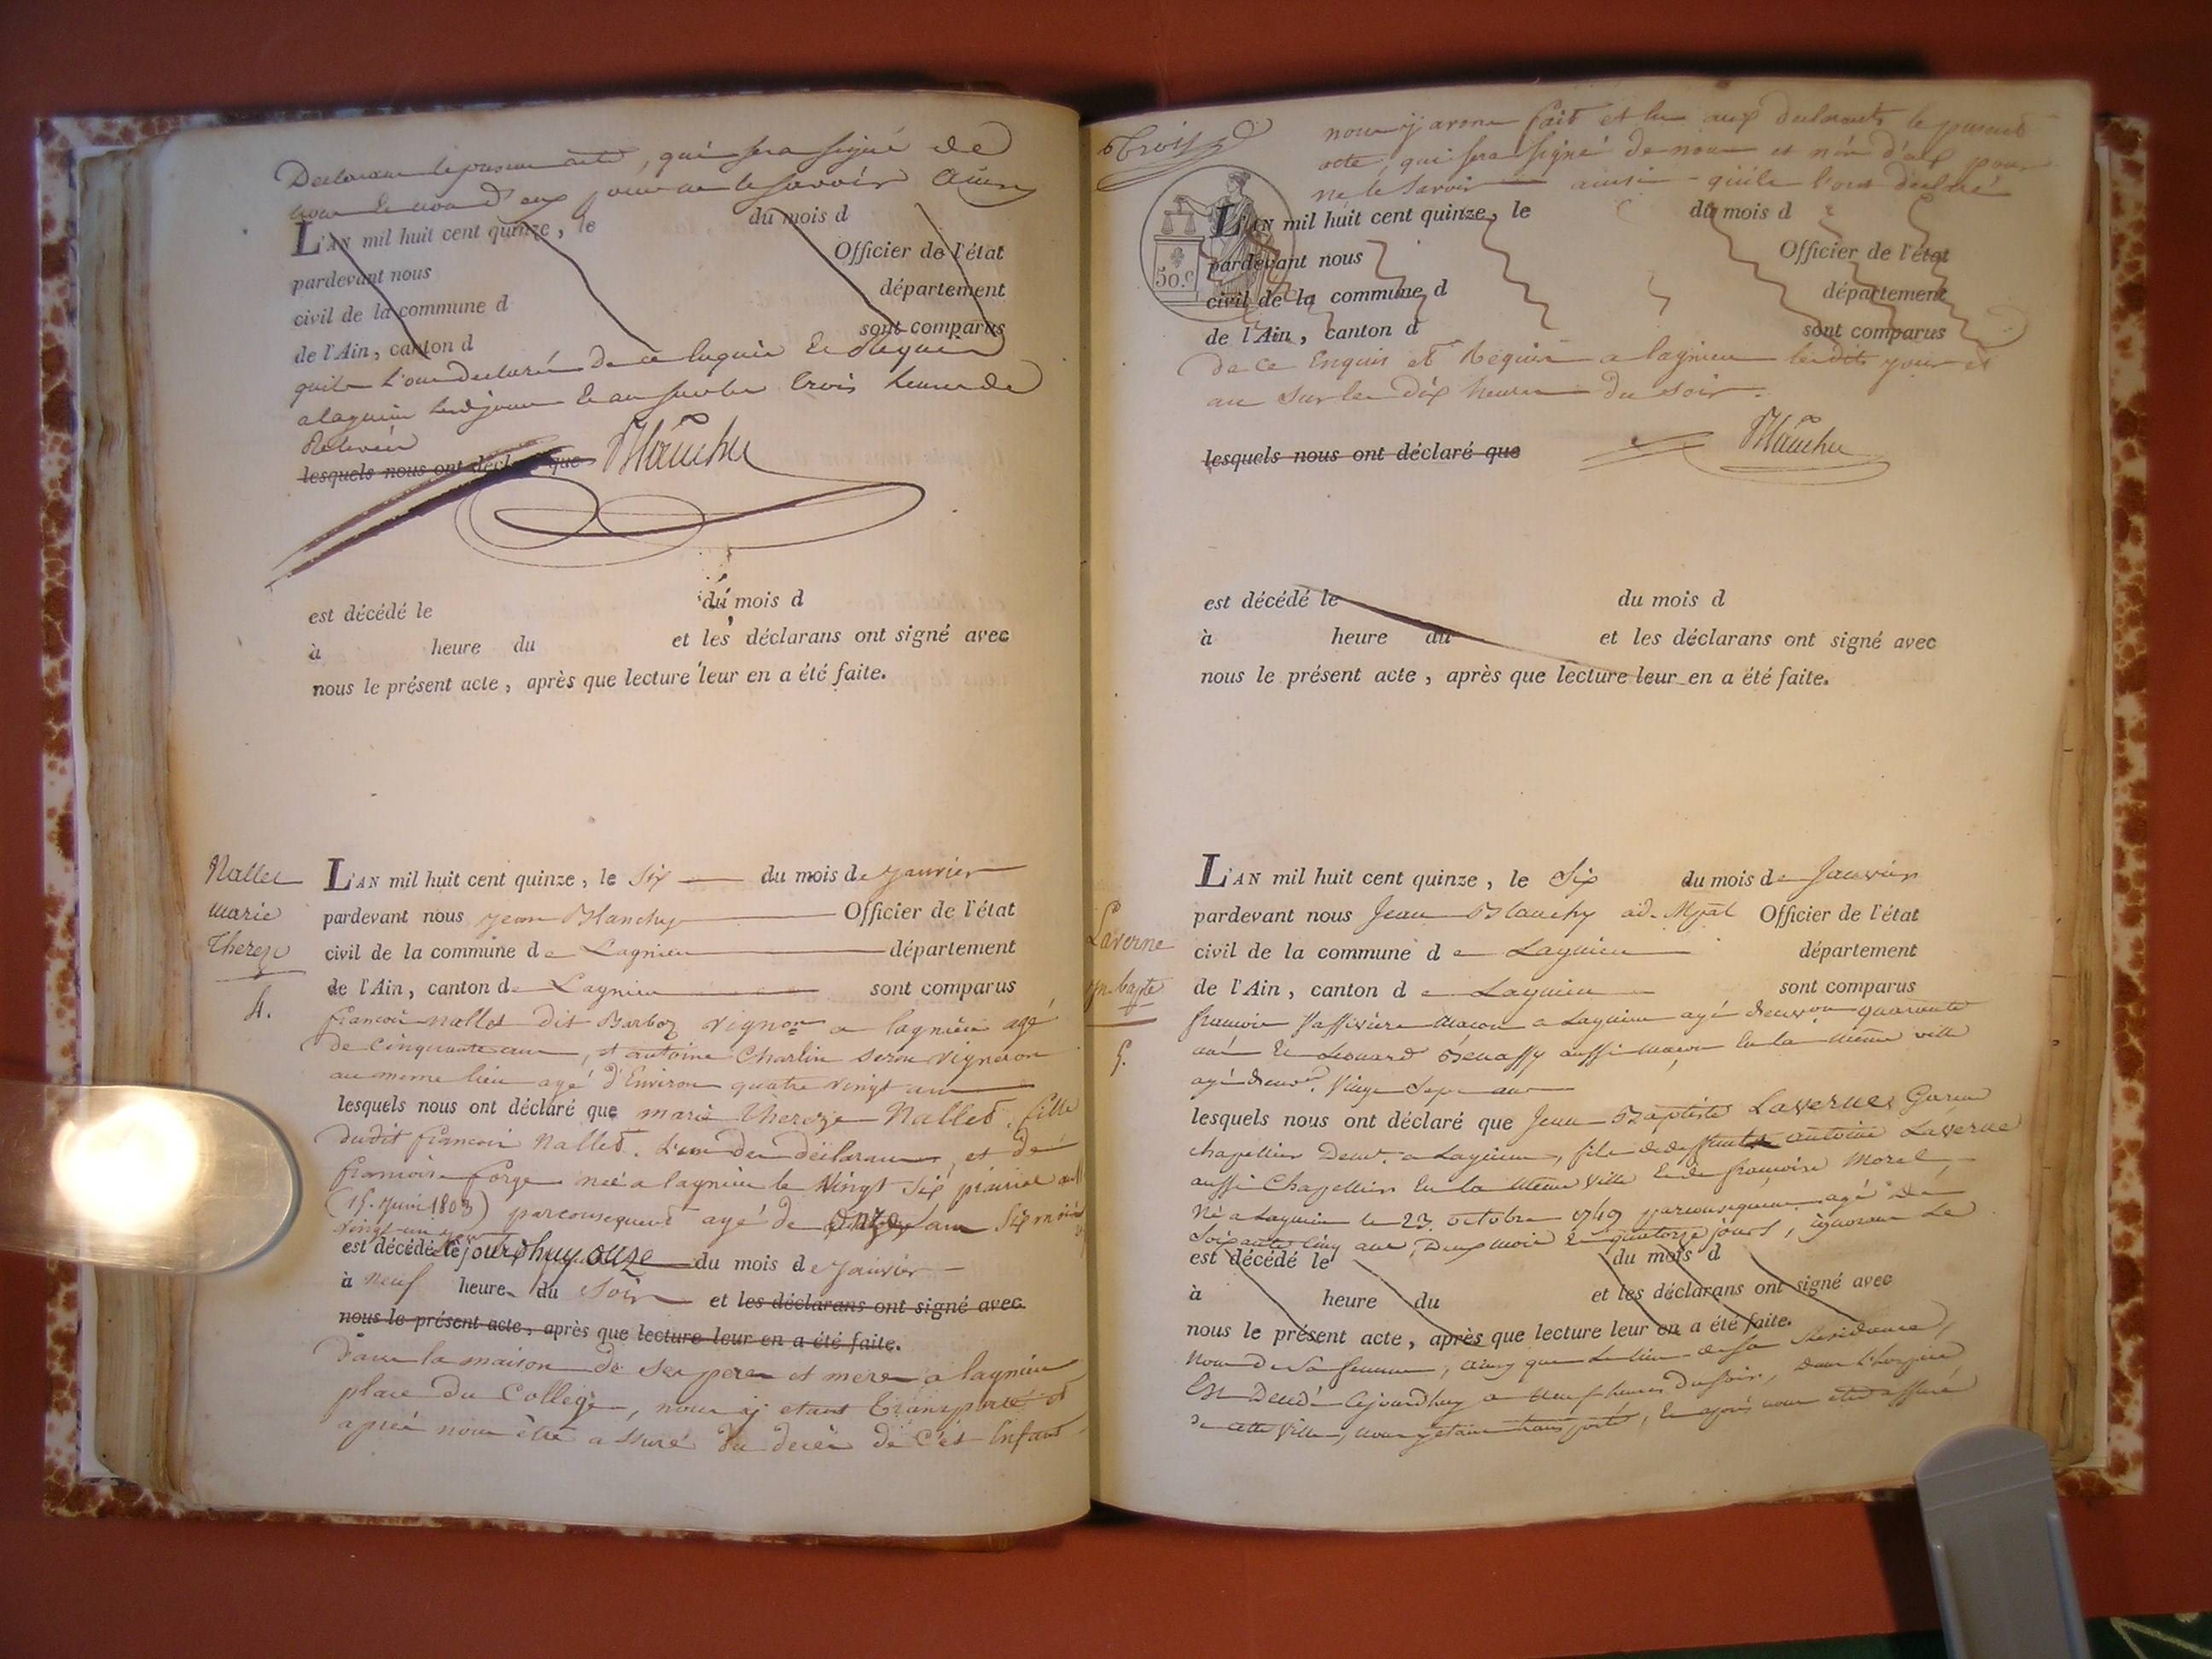 Declarans le present acte, qui sera signé de
nous le non d'eux pour ne le savoir Ainsy
L'AN mil huit cent quinze, le du mois d
pardevant nous Officier de l'état
civil de la commune d département
de l'Ain, canton d sont comparus
quils l'ont declaré de ce Enquis et Requis
a lagnieu led jour et an sur les trois heures de
Relevée
lesquels nous ont déclaré que Blanchy
est décédé le du mois d
à heure du et les déclarans ont signé avec
nous le présent acte, après que lecture leur en a été faite.
Nallet
marie
Thereze
4.
L'AN mil huit cent quinze, le Six du mois de janvier
pardevant nous jean Blanchy Officier de l'état
civil de la commune de Lagnieu département
de l'Ain, canton de Lagnieu sont comparus
francois nallet dit Barboz vignon a lagnieu agé
de cinquante ans, et antoine Charlin vigneron
au meme lieu agé d'Environ quatre vingt ans
lesquels nous ont déclaré que marie Thereze Nallet, fille
dudit francois Nallet, l'un des declarans, et de
francoise forge née a lagnieu le Vingt Six prairial
(15. juin 1803) parconsequent agé de onze ans Six mois
vingt-un jour
est décédé le jourdhuy onze du mois de janvier
à neuf heure du Soir et les déclarans ont signé avec
nous le présent acte, après que lecture leur en a été faite.
dans la maison de ses pere et mere a lagnieu
place du College, nous y etant transporté et
apres nous être assuré du decès de cet Enfant
Trois
50.c
nous y avons fait et lu aux declarants le present
acte, qui sera signé de nous et non d'eux pour
ne le Savoir ainsi quils l'ont declaré
L'AN mil huit cent quinze, le du mois d
pardevant nous Officier de l'état
civil de la commune d département
de l'Ain, canton d sont comparus
de ce Enquis et Requis a lagnieu lesdits jour et
an sur les dix heures du soir.
lesquels nous ont déclaré que Blanchy
est décédé le du mois d
à heure du et les déclarans ont signé avec
nous le présent acte, après que lecture leur en a été faite.
Laverne
jn-bapte
5.
L'AN mil huit cent quinze, le Six du mois de Janvier
pardevant nous Jean Blanchy ad. Mpal Officier de l'état
civil de la commune de Lagnieu département
de l'Ain, canton de Lagnieu sont comparus
francois macon a Lagnieu agé denviron quarante
ans Et Leonard aussi macon En la même ville
agé denvon. Vingt Sept ans
lesquels nous ont déclaré que Jean Baptiste Laverne Garcon
chapellier Demt. a Lagnieu, fils de deffunt antoine Laverne
aussi Chapellier En la même Ville Et de francoise Morel,
Né a Lagnieu le 23. octobre 1749 parconsequent agé de
Soixante Cinq ans, Deux mois Et quatorze jours, ignorant Le
est décédé le du mois d
à heure du et les déclarans ont signé avec
nous le présent acte, après que lecture leur en a été faite.
Nom de Sa femme, ainsy que le lieu de sa Residence,
Est Decedé Cejourdhuy a neuf heures du soir, dans L'hospice
de cette Ville, nous y etant transporté, Et après nous etre assuré